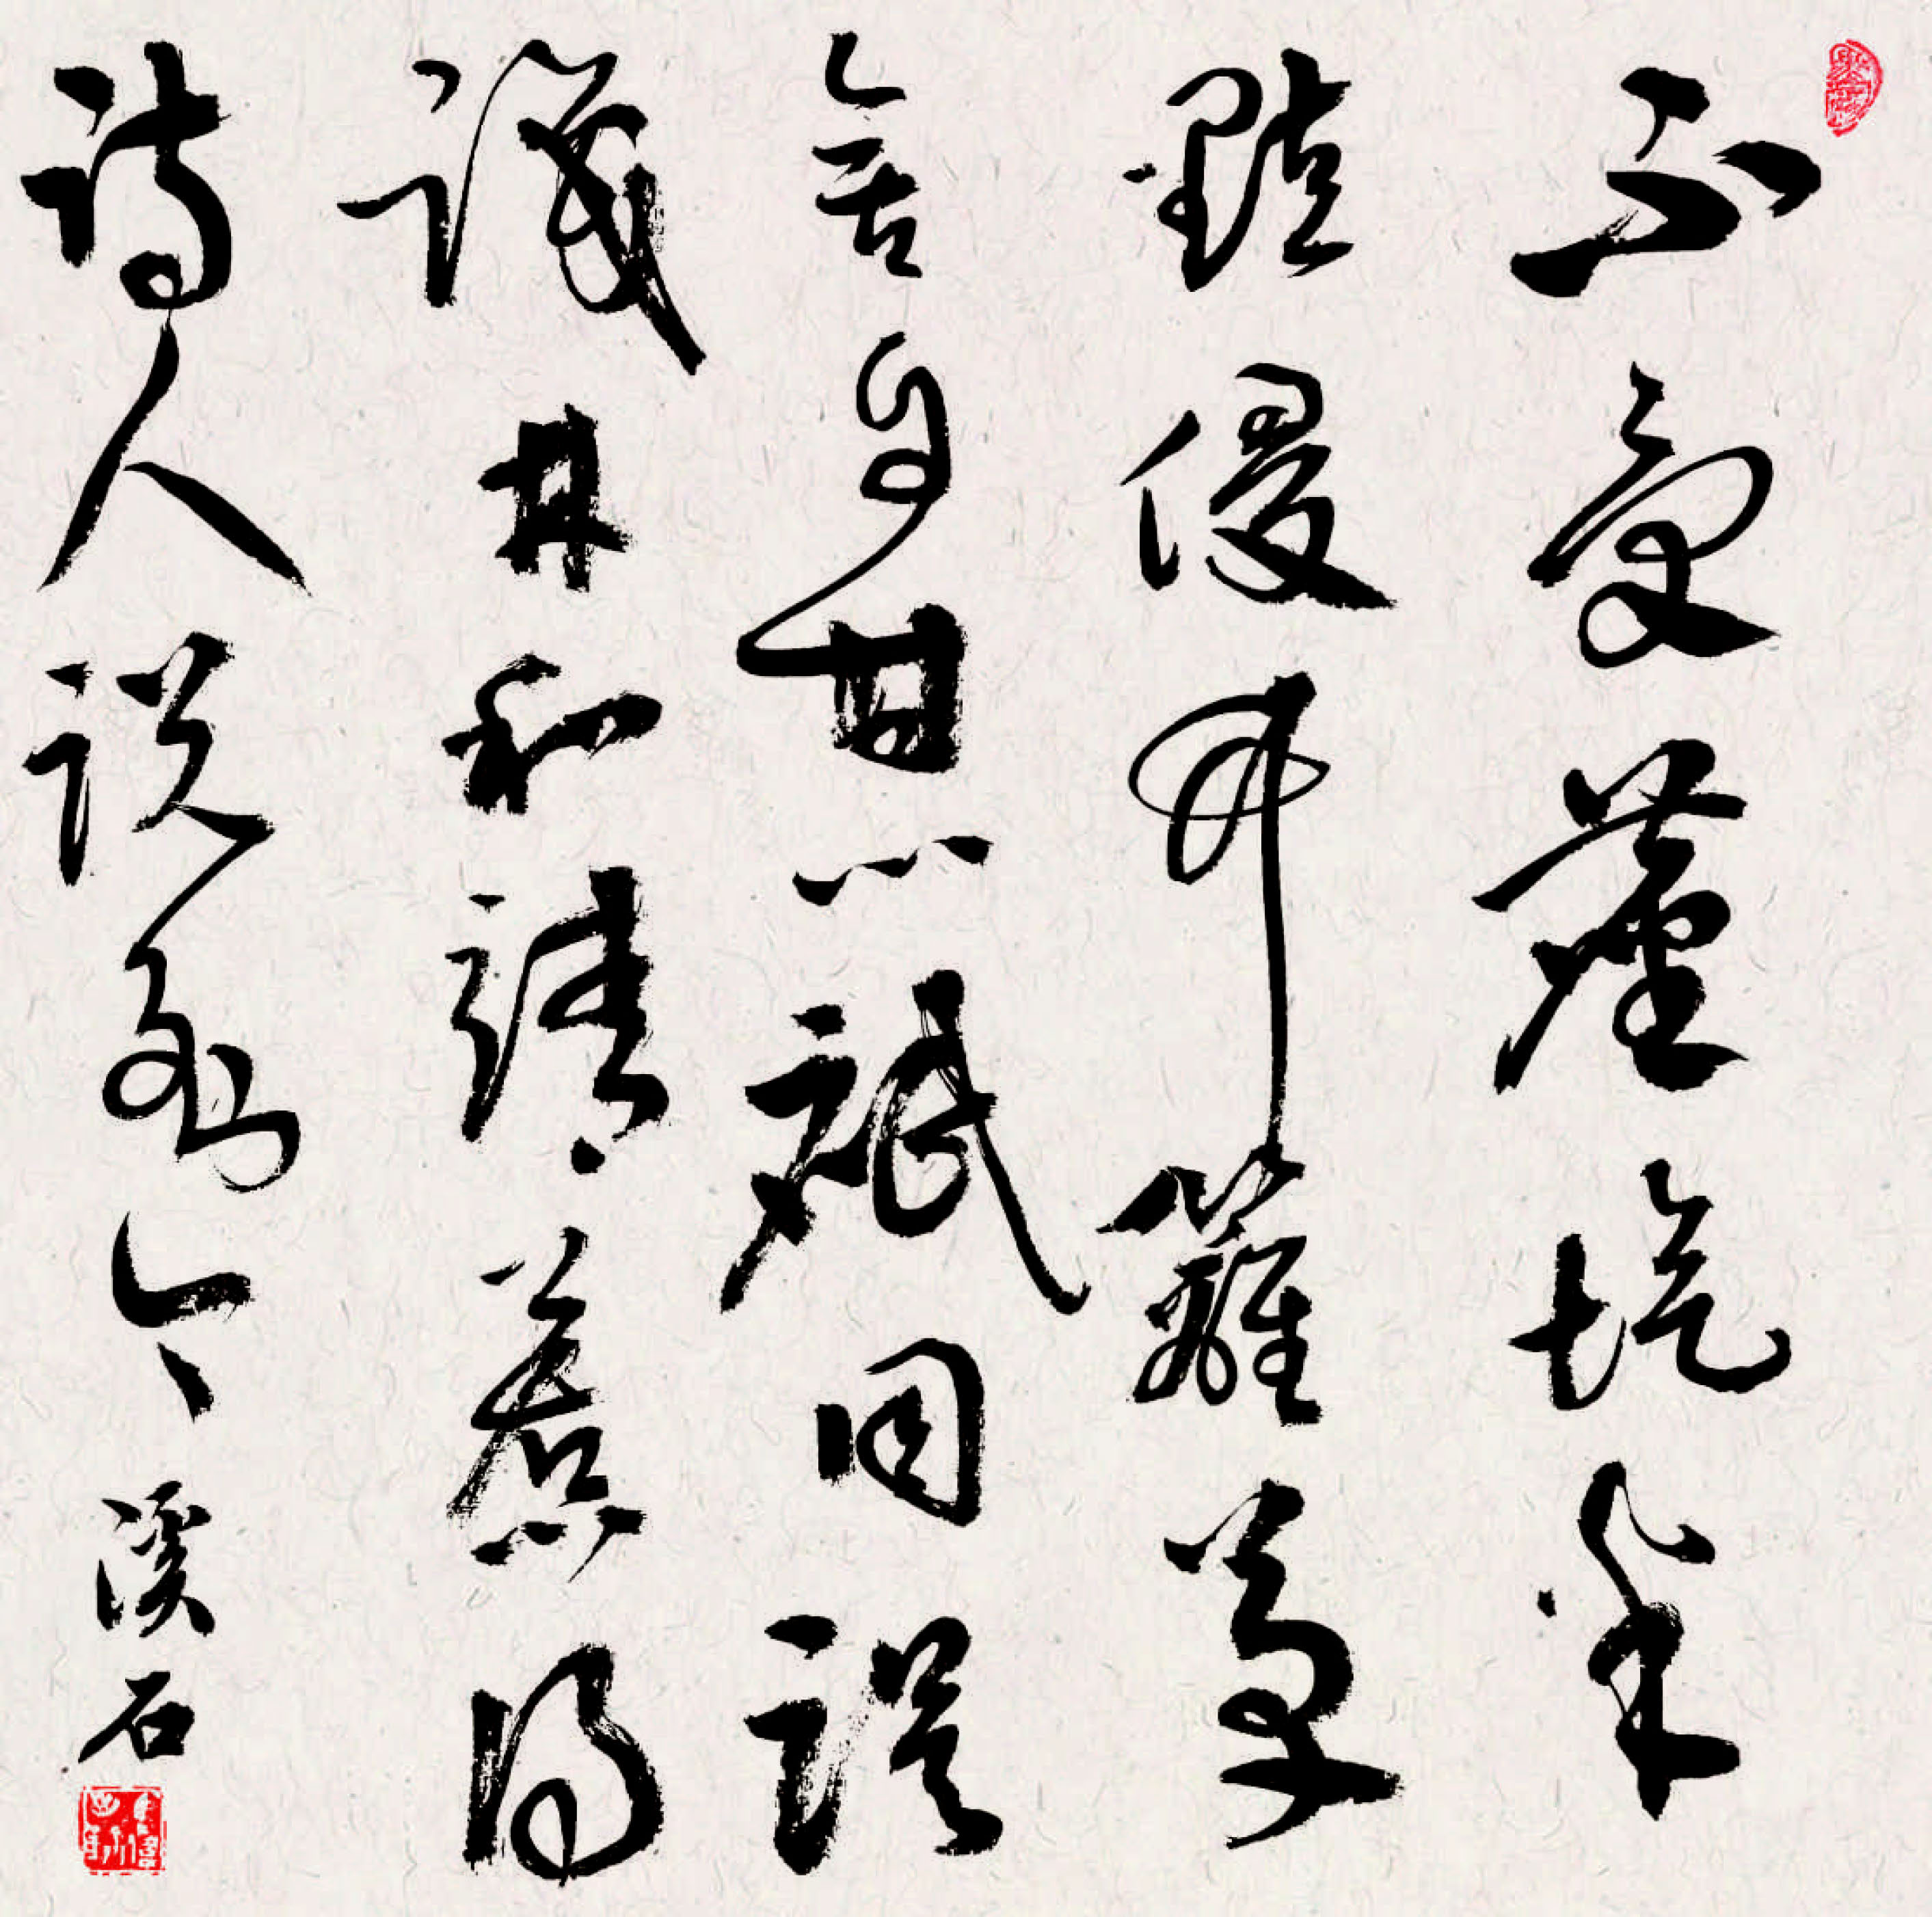 不受塵埃半
點侵竹籬茅
舍自甘心祇因誤
識林和靖惹得
詩人說到今 溪石